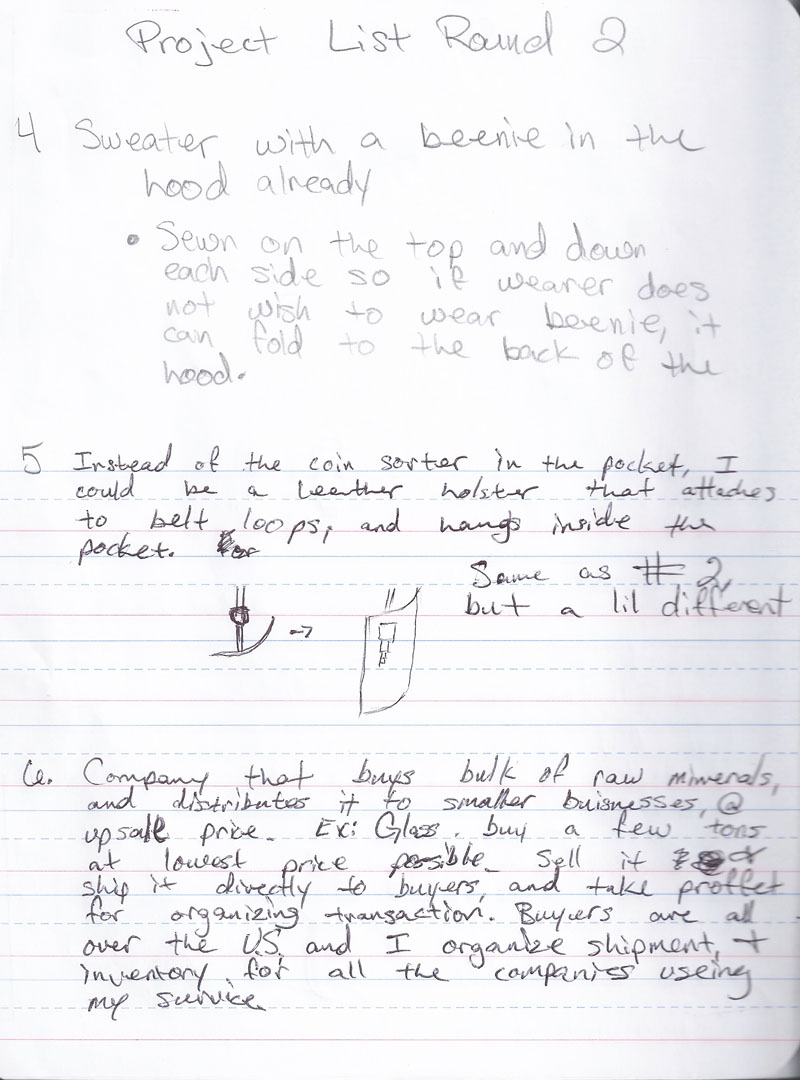 Project List Round 2
4 Sweater with a beenie in the
hood already
• Sewn on the top and down
each side so if wearer does
not wish to wear beenie, it
can fold to the back of the
hood.
5 Instead of the coin sorter in the pocket, I
could be a leather holster that attaches
to belt loops, and hangs inside the
pocket.
Same as # 2,
but a lil different
6. Company that buys bulk of raw minerals,
and distributes it to smaller buisnesses, @
upsale price. Ex: Glass. buy a few tons
at lowest price possible. Sell it &
ship it directly to buyers, and take proffet
for organizing transaction. Buyers are all
over the U.S. and I organize shipment, +
inventory for all the companies useing
my service.